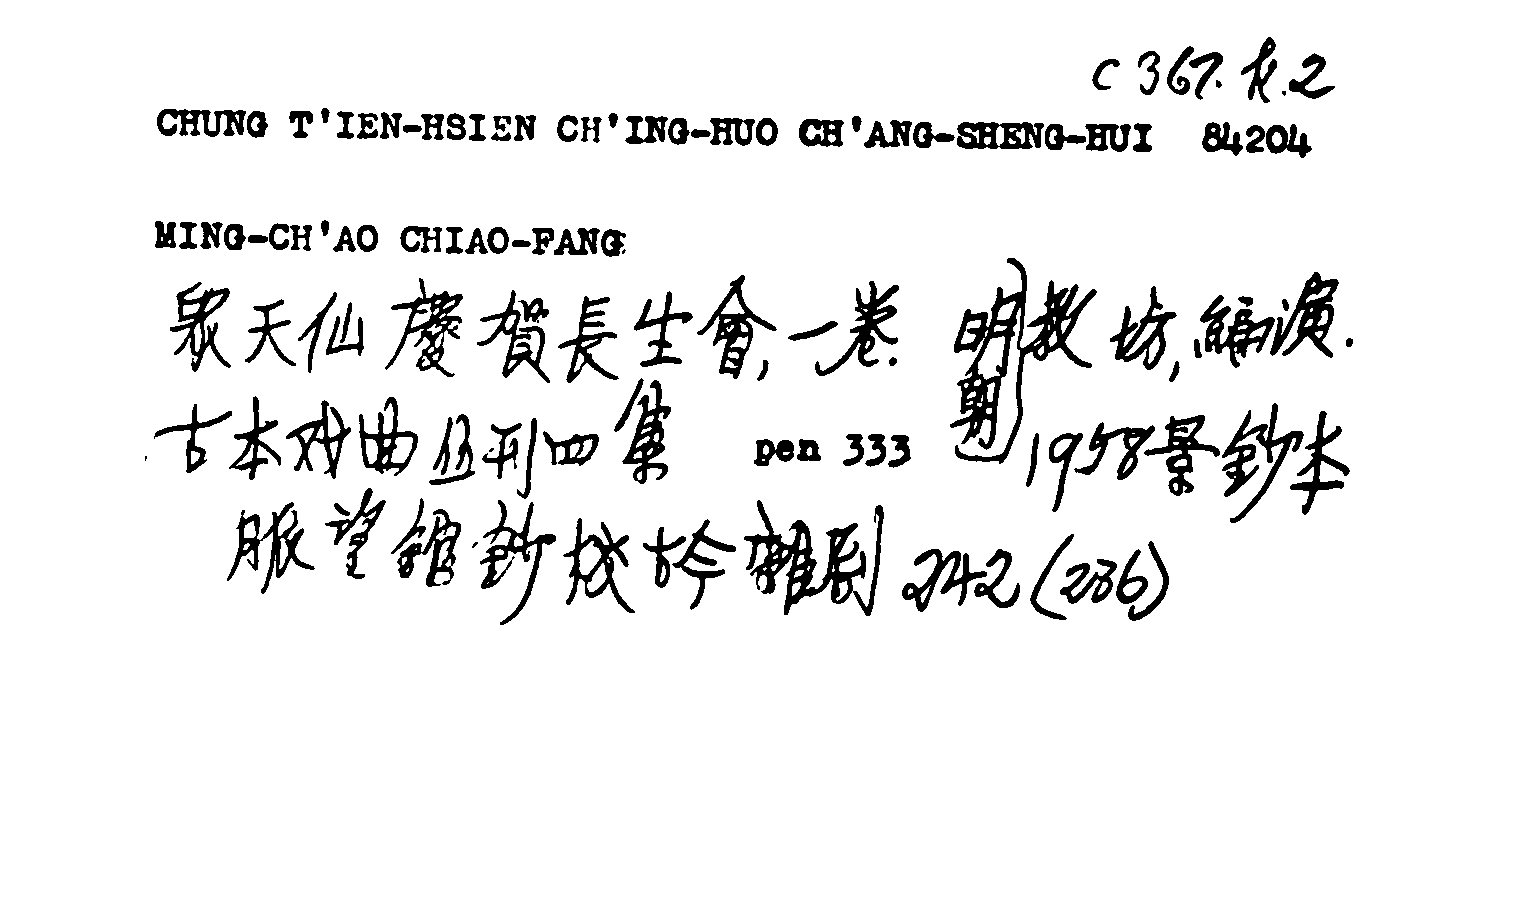 C 367.K.2
CHUNG T'IEN-HSIEN CH'ING-HUO CH'ANG-SHENG-HUI 84204
MING-CH'AO CHIAO-FANG
眾天仙慶賀長生會,一卷. 明朝教坊,編演.
古本戏曲丛刊四集 pen 333 1958景鈔本
脈望館鈔校古今雜剧 242(236)